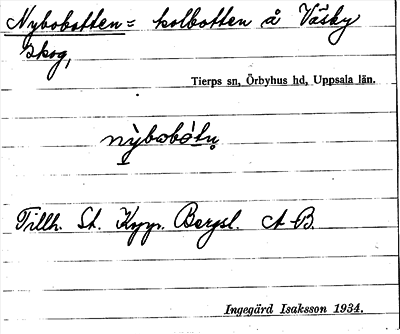 Nybobotten = kolbotten å Väsby
skog,
Tierps sn, Örbyhus hd, Uppsala län.
nỳbobótn̥
Tillh. St. Kopp. Bergsl. A-B.
Ingegärd Isaksson 1934.